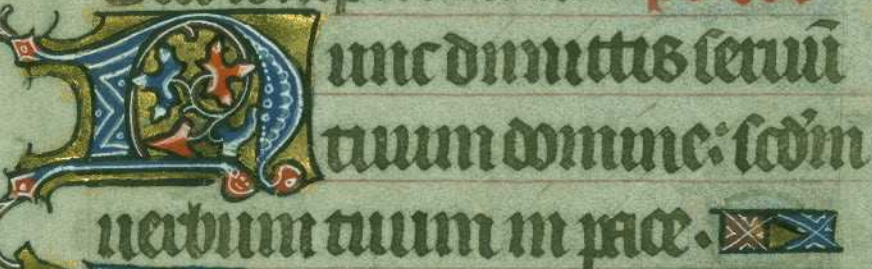 Nunc dimittis seruū
tuum domine: scd̄m
uerbum tuum in pace.